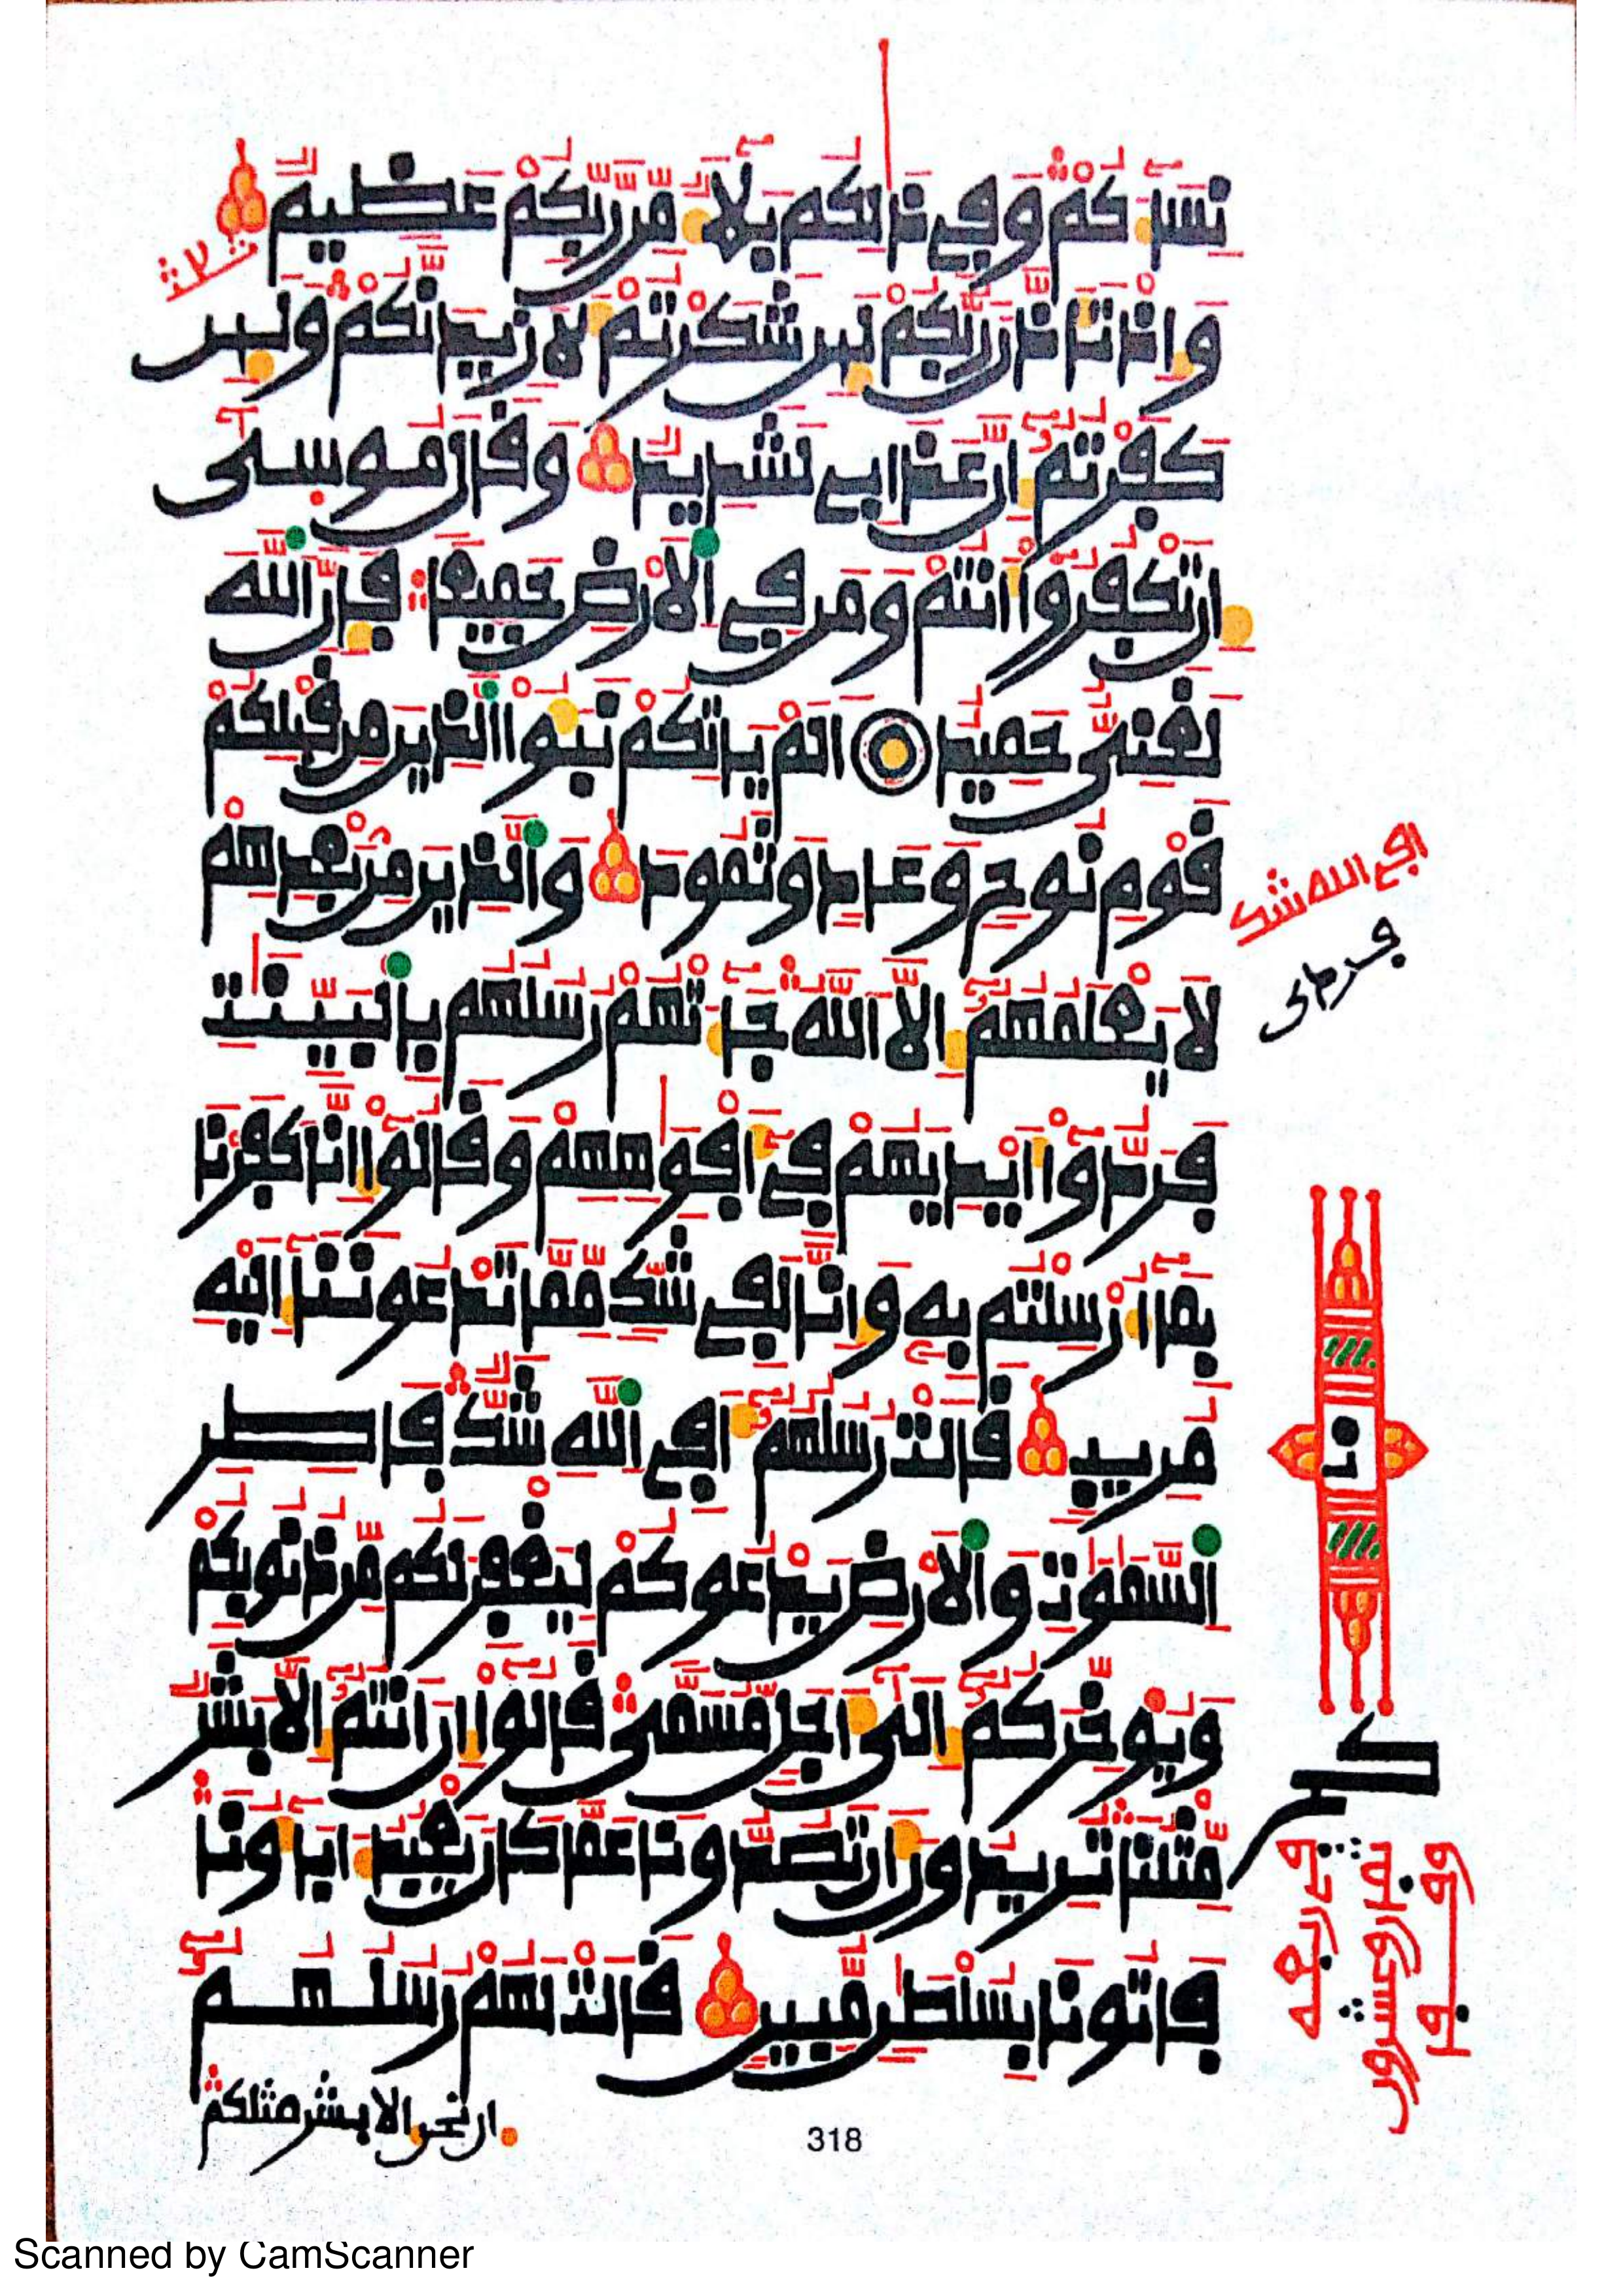 نِسَآءَكُمْ وَفِي ذَٰلِكُم بَلَآءٌ مِّن رَّبِّكُمْ عَظِيمٌ
وَإِذْ تَأَذَّنَ رَبُّكُمْ لَئِن شَكَرْتُمْ لَأَزِيدَنَّكُمْ وَلَئِن
كَفَرْتُمُۥٓ إِنَّ عَذَابِي لَشَدِيدٌ وَقَالَ مُوسَىٰٓ
إِن تَكْفُرُوٓا۟ أَنتُمْ وَمَن فِي ٱلْأَرْضِ جَمِيعًا فَإِنَّ ٱللَّهَ
لَغَنِيٌّ حَمِيدٌ أَلَمْ يَأْتِكُمْ نَبَؤُا۟ ٱلَّذِينَ مِن قَبْلِكُمْ
قَوْمِ نُوحٍ وَعَادٍ وَثَمُودَ وَٱلَّذِينَ مِنۢ بَعْدِهِمْ
لَا يَعْلَمُهُمُۥٓ إِلَّا ٱللَّهُ جَآءَتْهُمْ رُسُلُهُم بِٱلْبَيِّنَٰتِ
فَرَدُّوٓا۟ أَيْدِيَهُمْ فِيٓ أَفْوَٰهِهِمْ وَقَالُوٓا۟ إِنَّا كَفَرْنَا
بِمَآ أُرْسِلْتُم بِهِۦ وَإِنَّا لَفِي شَكٍّ مِّمَّا تَدْعُونَنَآ إِلَيْهِ
مُرِيبٍ قَالَتْ رُسُلُهُمُۥٓ أَفِي ٱللَّهِ شَكٌّ فَاطِرِ
ٱلسَّمَٰوَٰتِ وَٱلْأَرْضِ يَدْعُوكُمْ لِيَغْفِرَ لَكُم مِّن ذُنُوبِكُمْ
وَيُوَخِّرَكُمُۥٓ إِلَىٰٓ أَجَلٍ مُّسَمًّى قَالُوٓا۟ إِنْ أَنتُمُۥٓ إِلَّا بَشَرٌ
مِّثْلُنَا تُرِيدُونَ أَن تَصُدُّونَا عَمَّا كَانَ يَعْبُدُ ءَابَآؤُنَا
فَأْتُونَا بِسُلْطَٰنٍ مُّبِينٍ قَالَتْ لَهُمْ رُسُلُهُمُۥٓ
إن نحن إلا بشر مثلكم
أفي الله شك
318
Scanned by CamScanner